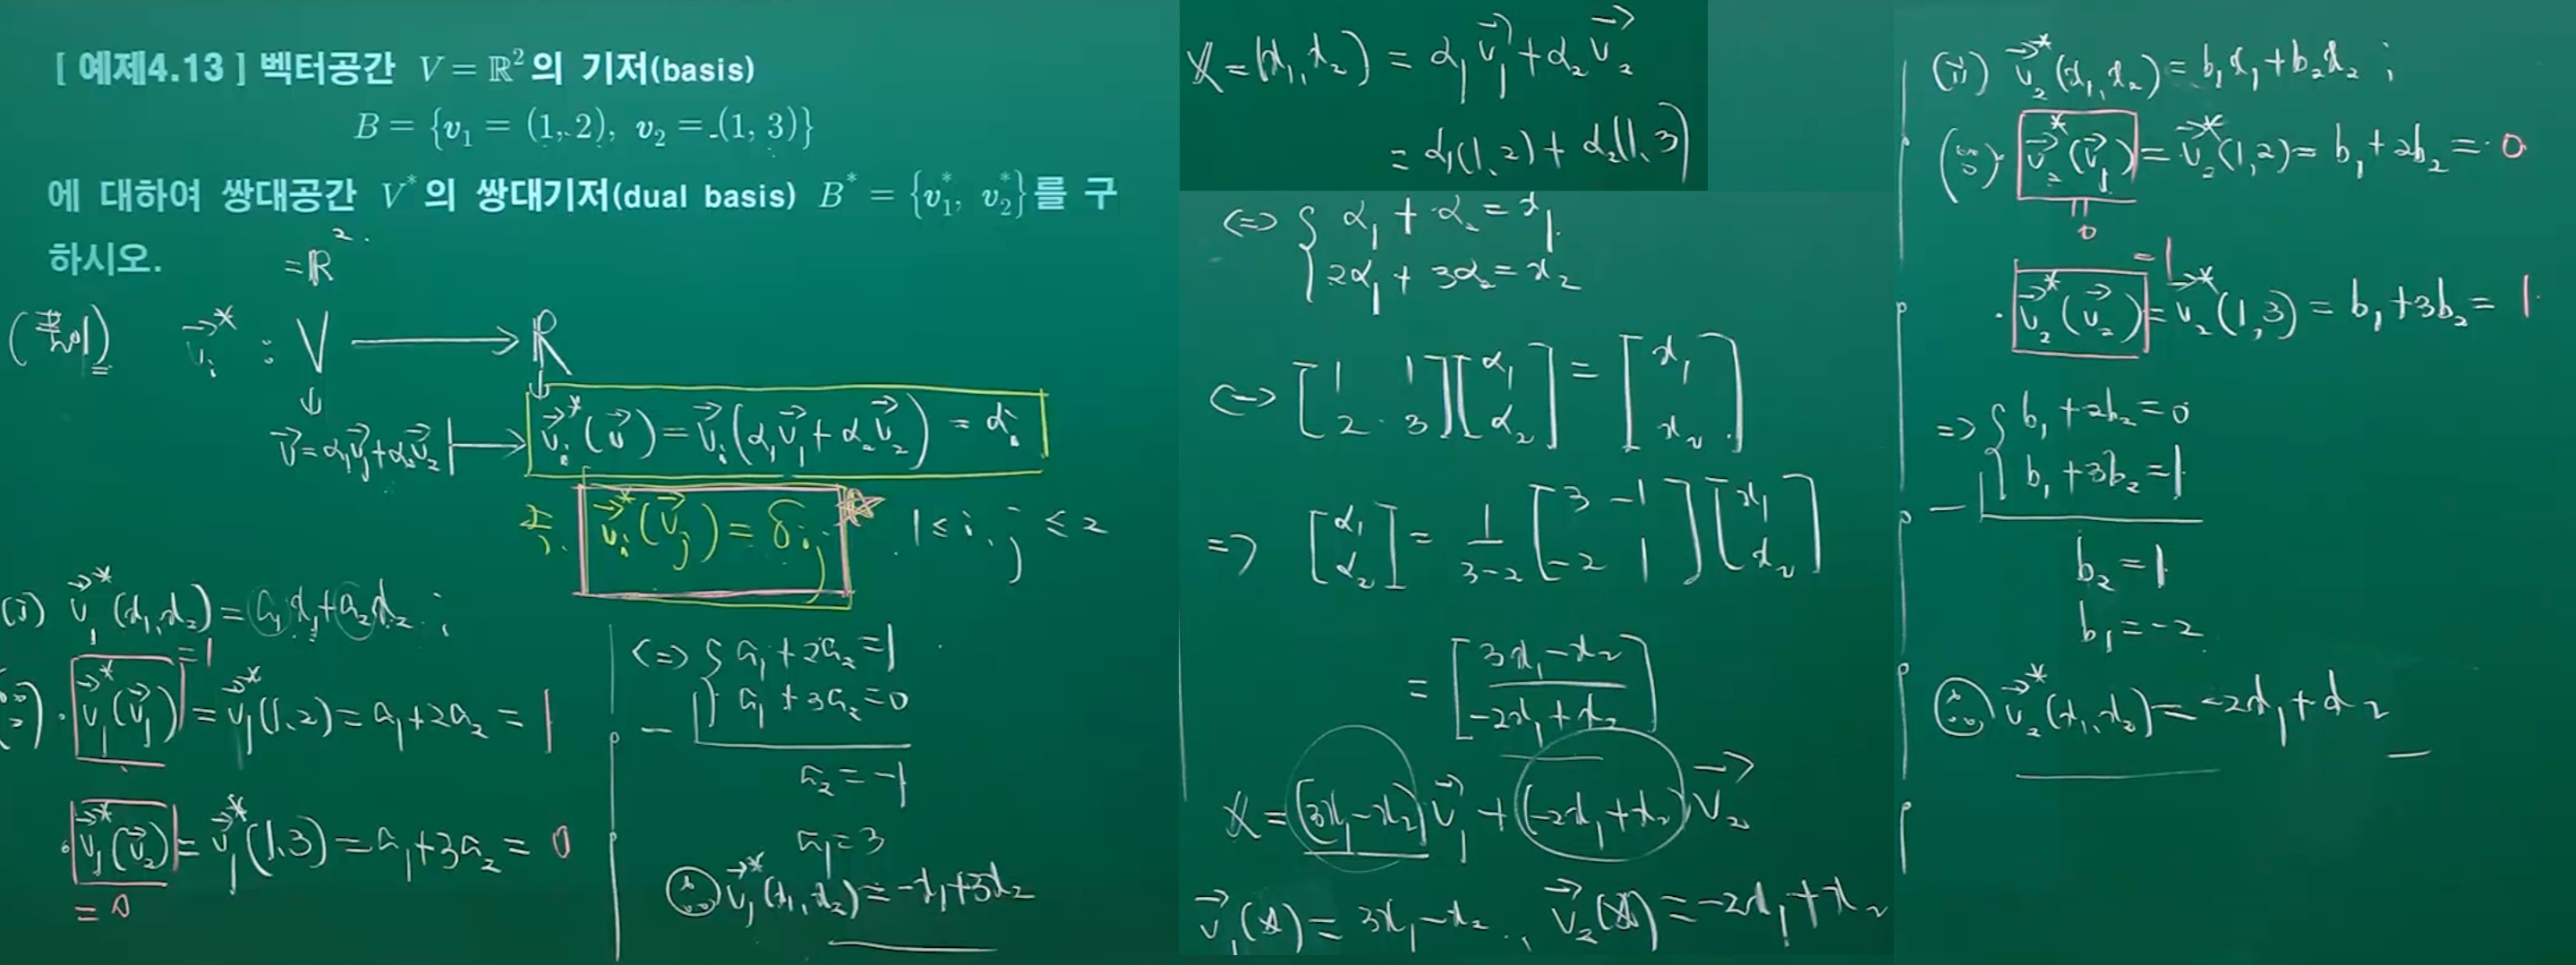 [ 예제4.13 ] 벡터공간 V = ℝ² 의 기저(basis)
B = {v₁ = (1, 2), v₂ = (1, 3)}
에 대하여 쌍대공간 V* 의 쌍대기저(dual basis) B* = {v₁*, v₂*}를 구
하시오.
= ℝ²
(풀이) v⃗ᵢ* : V → ℝ
v⃗ = α₁v⃗₁ + α₂v⃗₂ ↦ v⃗ᵢ*(v⃗) = v⃗ᵢ(α₁v⃗₁ + α₂v⃗₂) = αᵢ
즉. v⃗ᵢ*(v⃗ⱼ) = δᵢⱼ ☆ 1 ≤ i, j ≤ 2
(i) v⃗₁*(x₁, x₂) = a₁x₁ + a₂x₂ ;
(∵) · v⃗₁*(v⃗₁) = v⃗₁*(1, 2) = a₁ + 2a₂ = 1
= 1
· v⃗₁*(v⃗₂) = v⃗₁*(1, 3) = a₁ + 3a₂ = 0
= 0
⟺ { a₁ + 2a₂ = 1
a₁ + 3a₂ = 0
−
a₂ = −1
a₁ = 3
∴ v⃗₁*(x₁, x₂) = −x₁ + 3x₂
x = (x₁, x₂) = α₁v⃗₁ + α₂v⃗₂
= α₁(1, 2) + α₂(1, 3)
⟺ { α₁ + α₂ = x₁
2α₁ + 3α₂ = x₂
⟺ [1 1; 2 3][α₁; α₂] = [x₁; x₂]
⟹ [α₁; α₂] = 1/(3−2) [3 −1; −2 1][x₁; x₂]
= [3x₁ − x₂; −2x₁ + x₂]
x = (3x₁ − x₂)v⃗₁ + (−2x₁ + x₂)v⃗₂
v⃗₁(x) = 3x₁ − x₂ , v⃗₂(x) = −2x₁ + x₂
(ii) v⃗₂*(x₁, x₂) = b₁x₁ + b₂x₂ ;
(∵) · v⃗₂*(v⃗₁) = v⃗₂*(1, 2) = b₁ + 2b₂ = 0
= 0
= 1
· v⃗₂*(v⃗₂) = v⃗₂*(1, 3) = b₁ + 3b₂ = 1
⟹ { b₁ + 2b₂ = 0
b₁ + 3b₂ = 1
−
b₂ = 1
b₁ = −2
∴ v⃗₂*(x₁, x₂) = −2x₁ + x₂